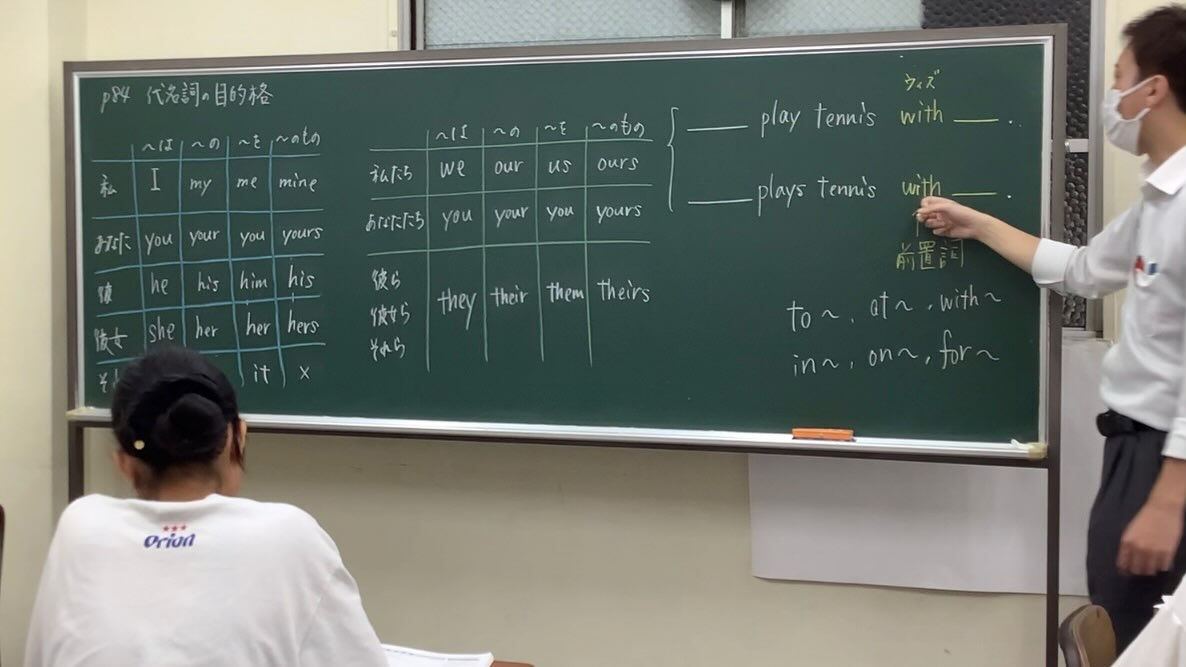 p84 代名詞の目的格
～は ～の ～を ～のもの
私 I my me mine
あなた you your you yours
彼 he his him his
彼女 she her her hers
そ it x
～は ～の ～を ～のもの
私たち we our us ours
あなたたち you your you yours
彼ら
彼女ら they their them theirs
それら
ウィズ
____ play tennis with ____.
____ plays tennis with ____.
前置詞
to ～, at ～, with ～
in ～, on ～, for ～
Orion